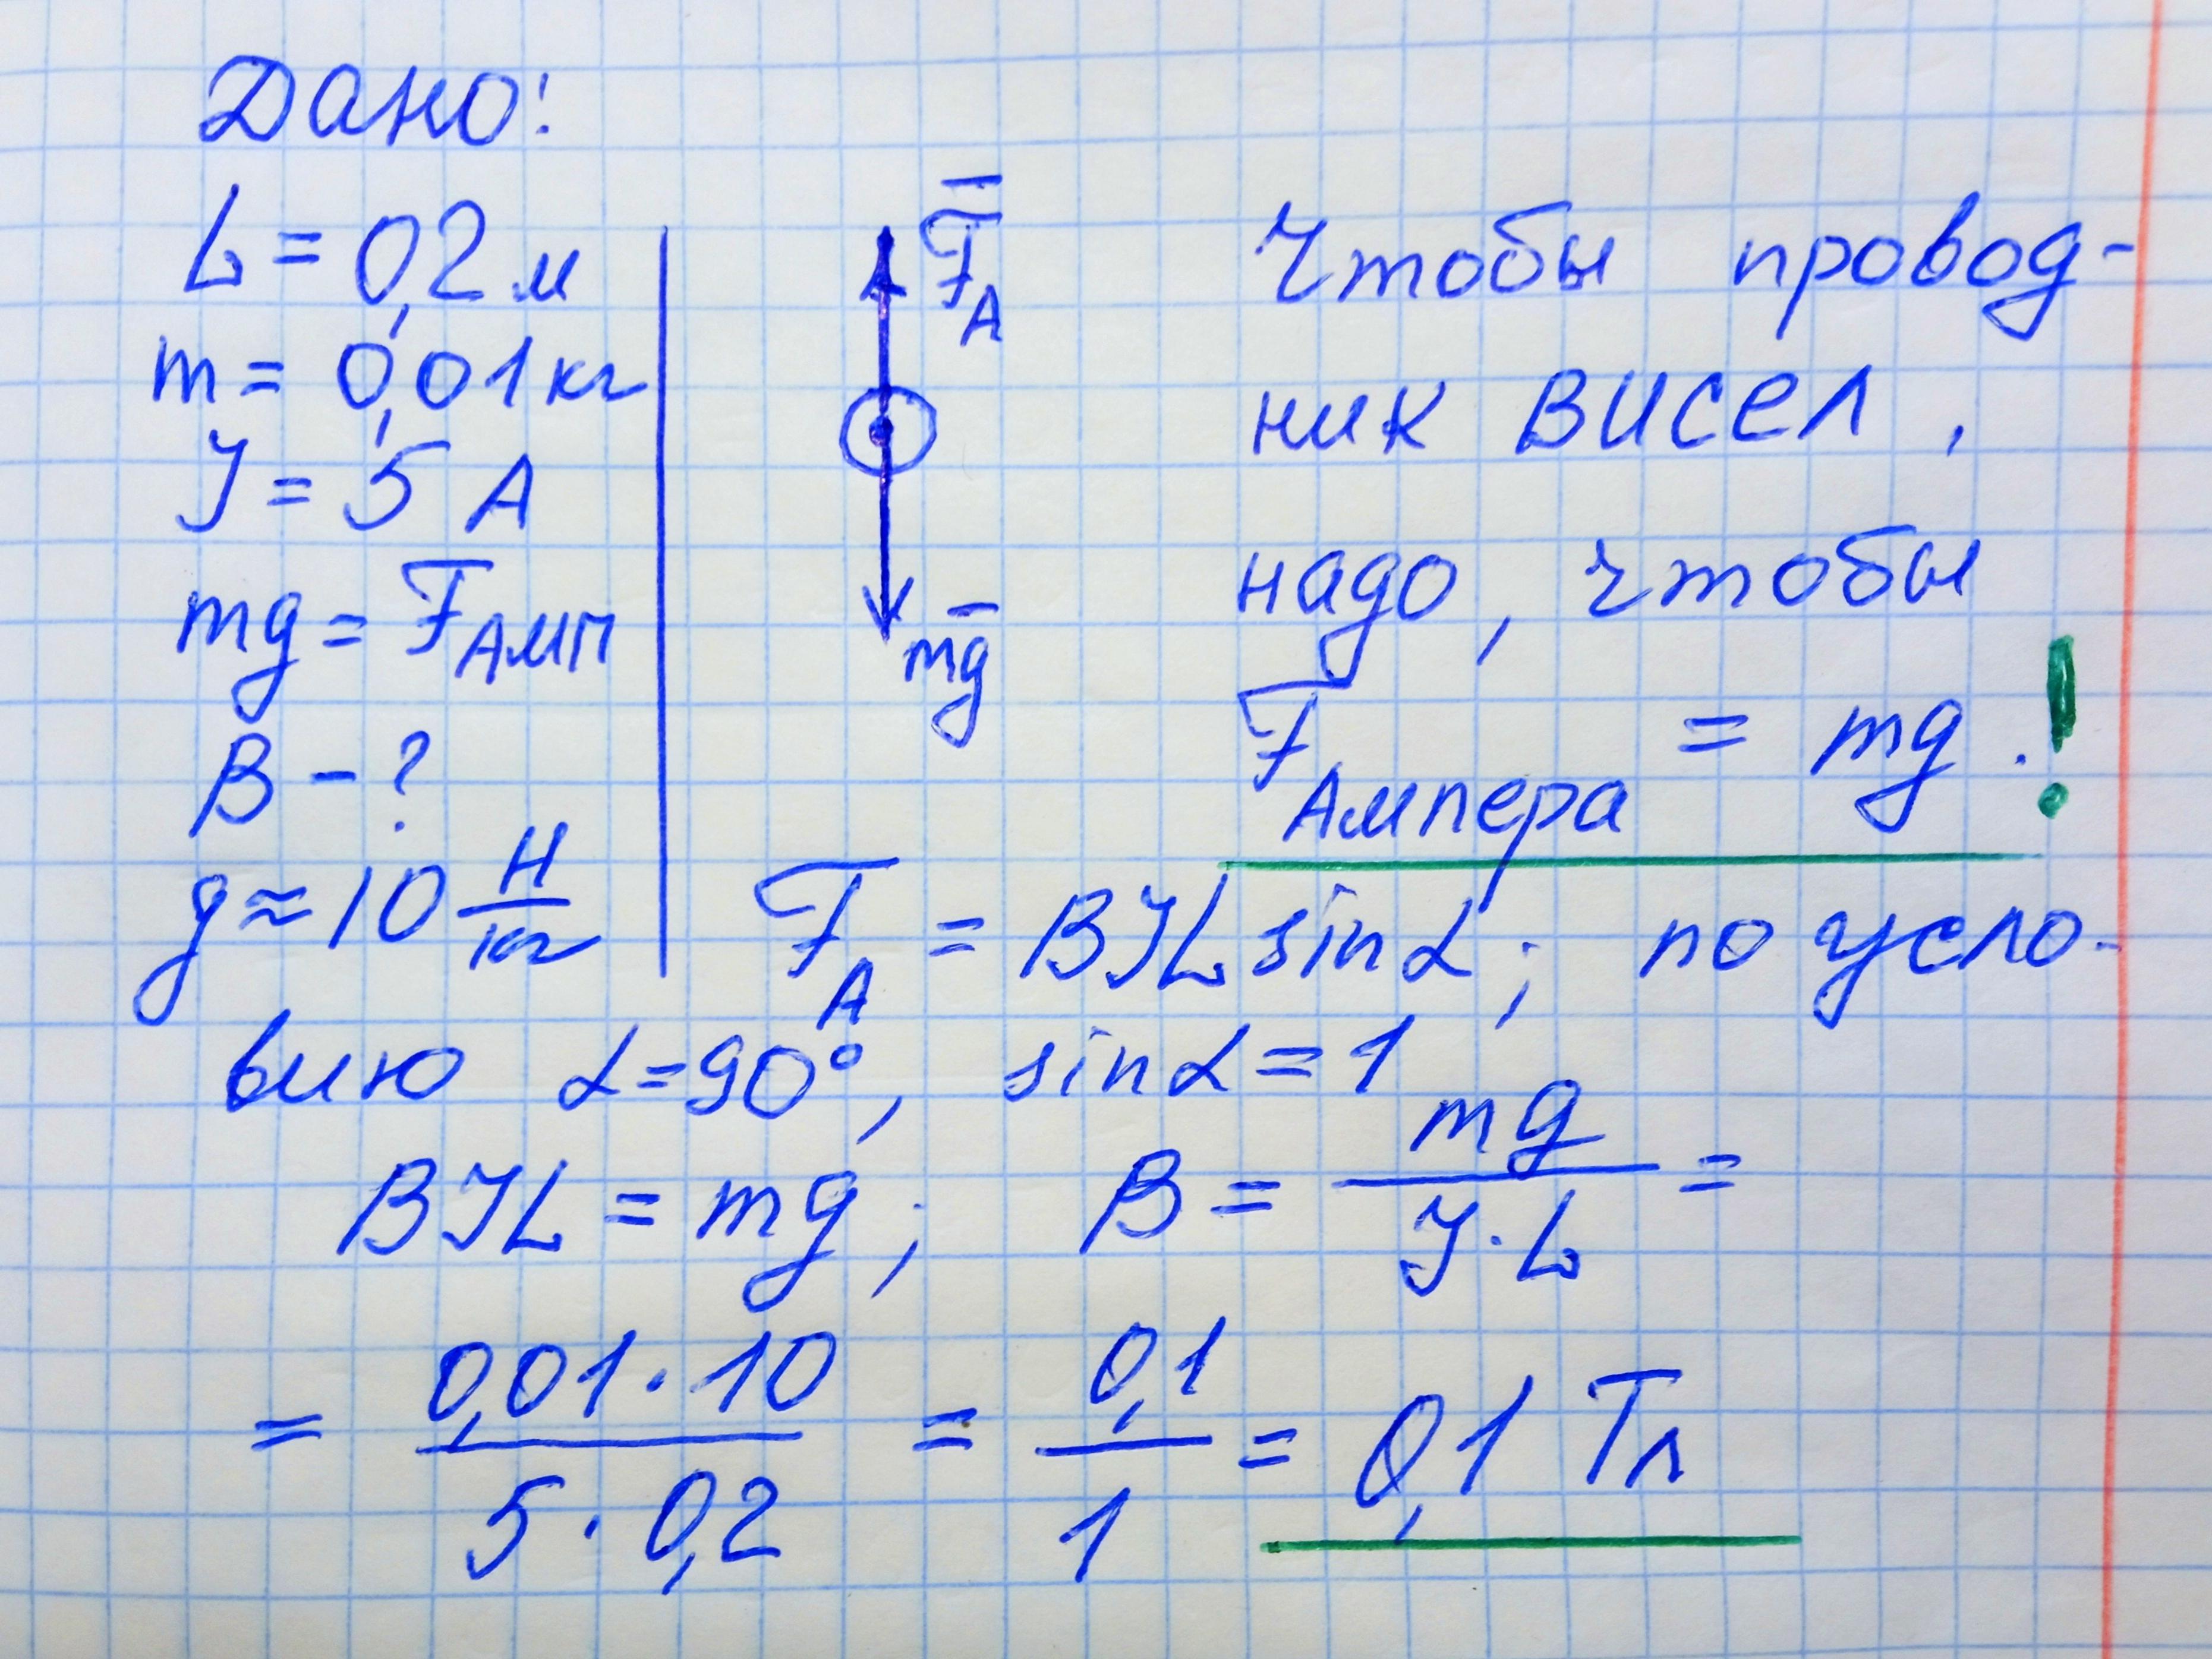 Дано:
L = 0,2 м
m = 0,01 кг
J = 5 А
mg = Fамп
B - ?
g ≈ 10 Н/кг
F̅A
m̅g
Чтобы провод-
ник висел,
надо, чтобы
FАмпера = mg. !
FA = BJL sin α; по усло-
вию α = 90°, sin α = 1
BJL = mg; B = mg / J · L =
= 0,01 · 10 / 5 · 0,2 = 0,1 / 1 = 0,1 Тл